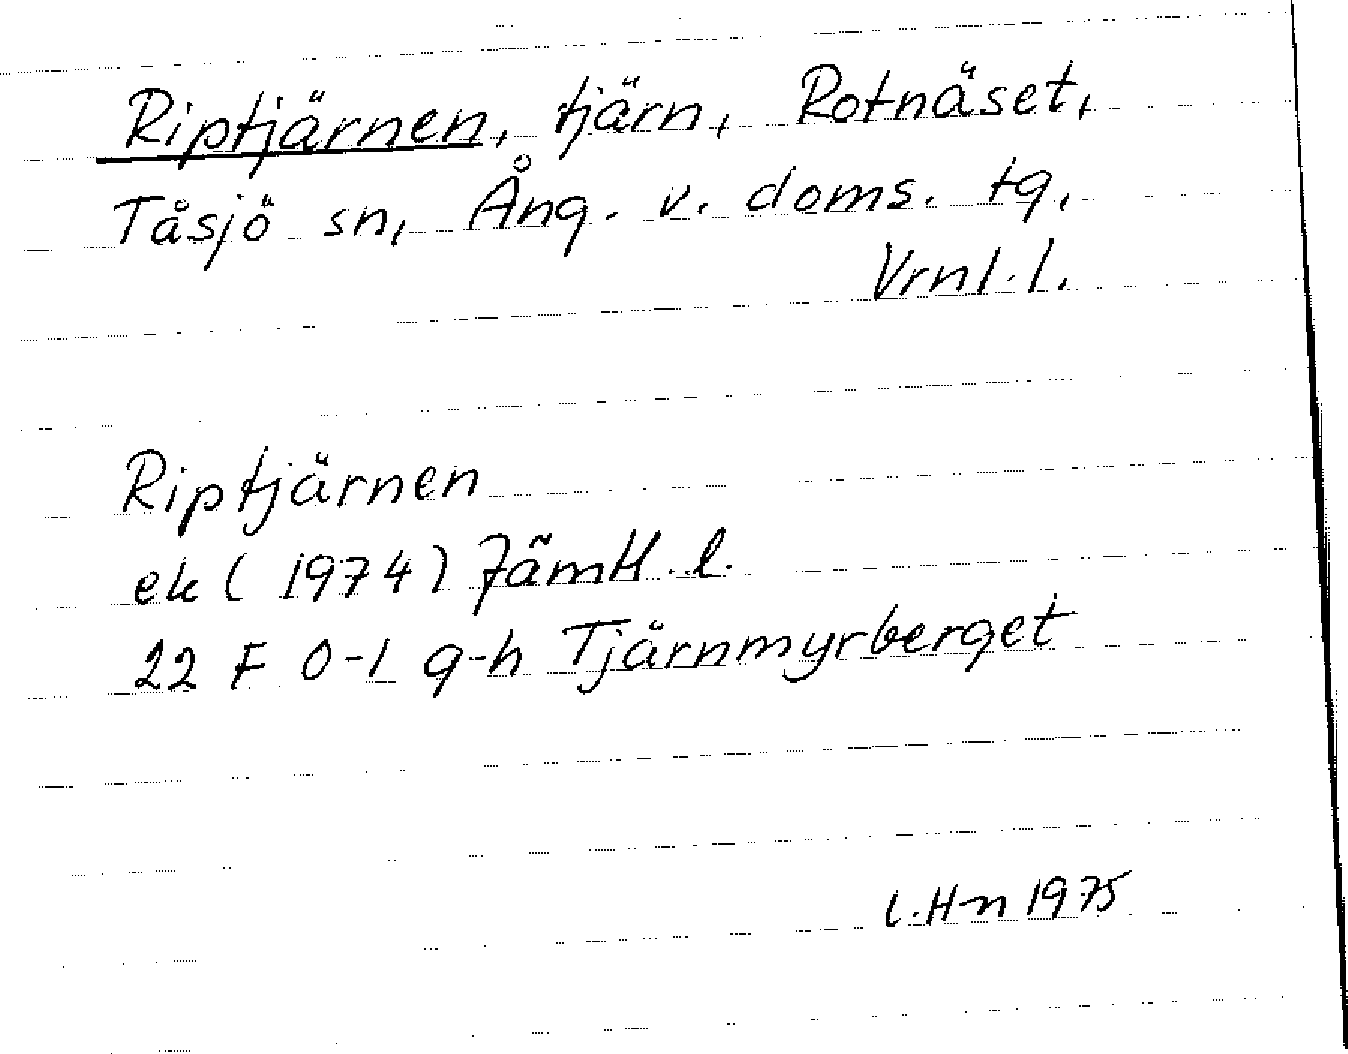 Riptjärnen, tjärn, Rotnäset,
Tåsjö sn, Ång. v. doms. tg,
Vrnl.l.
Riptjärnen
ek (1974) Jämtl. l.
22 F 0-1 g-h Tjärnmyrberget
L.Hn 1975